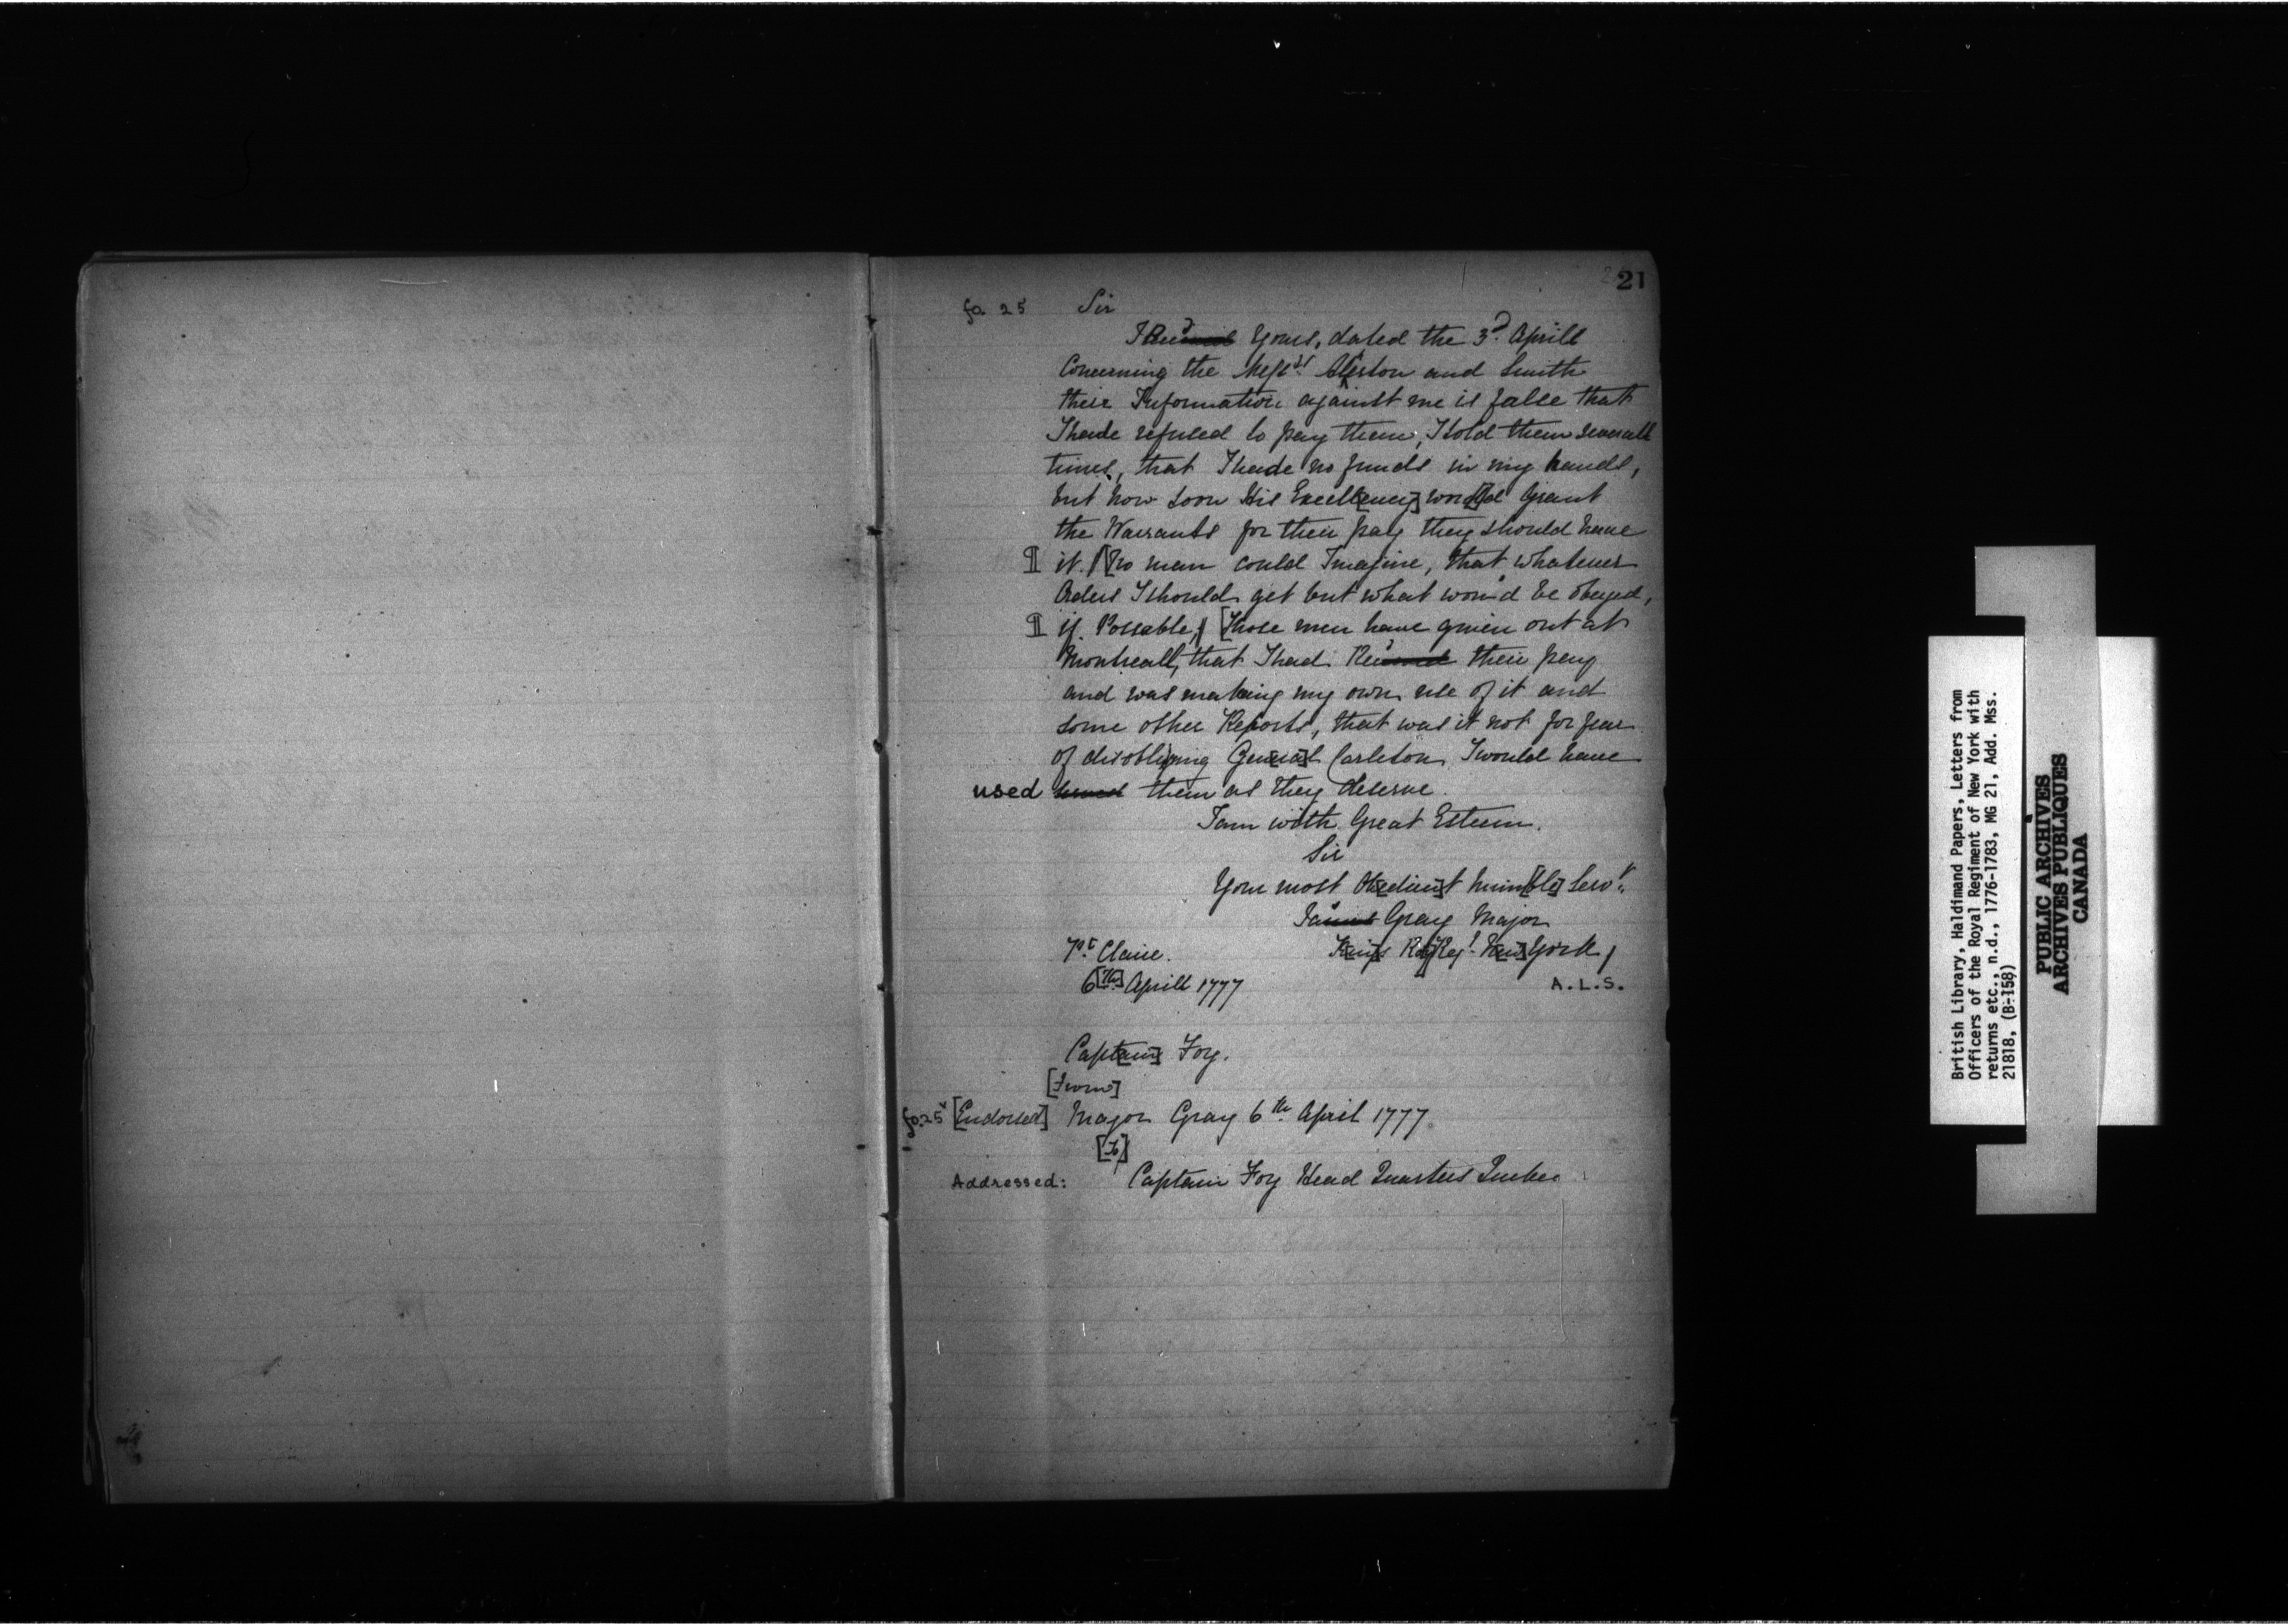 21
fo 25 Sir
I Rec'd Yours, dated the 3d. Aprill
Concerning the Messrs. and Smith
their Information against me is false that
I hade refused to pay them, I told them severall
times, that I hade no funds in my hands,
but how soon His Excell[ency] wou[l]d Grant
the Warrants for their pay they should have
¶ it. [No man could Imagine, that whatever
Orders I should get but what wou'd be obeyed,
¶ if Possable, [Those men have given out at
Montreall, that I had Rec'd their pay
and was making my own use of it and
some other Reports, that was it not for fear
of disobliging Gen[era]l Carleton I would have
used them as they deserve.
I am with Great Esteem.
Sir
Your most Ob[edien]t hum[ble] Servt.
Ja's Gray Major
Pt Claire. K[ing]s R[oy] Regt. N[ew] York
6[th] Aprill 1777 A.L.S.
Capt[ain] Foy.
[From]
fo. 25v [Endorsed] Major Gray 6th April 1777
[To]
Addressed: Captain Foy Head Quarters Quebec
British Library, Haldimand Papers, Letters from
Officers of the Royal Regiment of New York with
returns etc., n.d., 1776-1783, MG 21, Add. Mss.
21818, (B-158)
PUBLIC ARCHIVES
ARCHIVES PUBLIQUES
CANADA